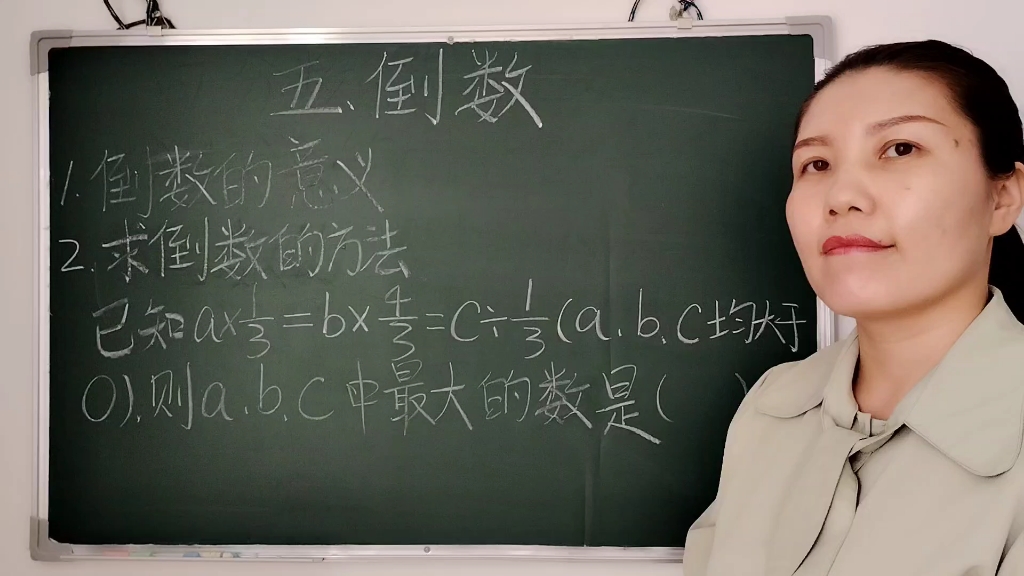 五、倒数
1.倒数的意义
2.求倒数的方法
已知a×1/3=b×4/3=c÷1/3(a、b、c均大于
0),则a、b、c中最大的数是( )